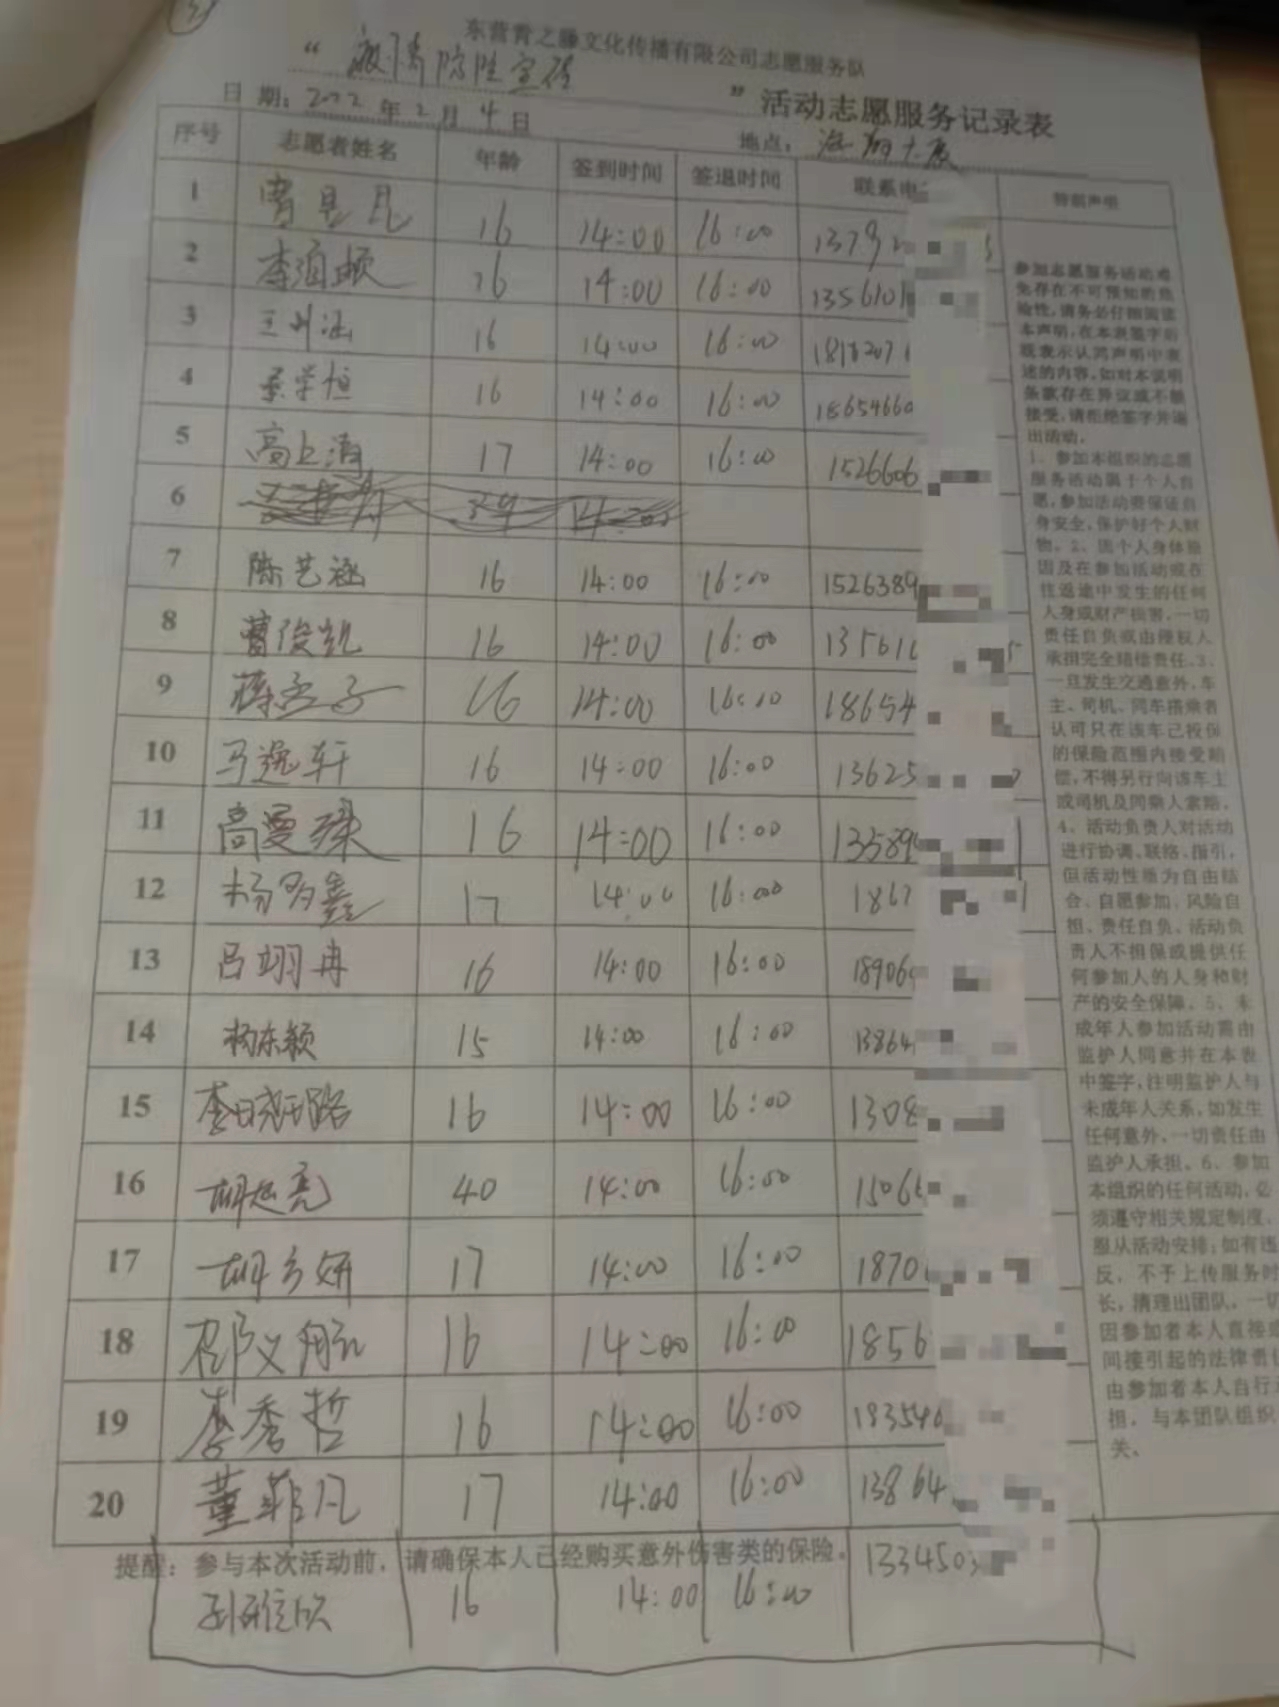 东营青之藤文化传播有限公司志愿服务队
“疫情防控宣传”活动志愿服务记录表
日期：2022年2月4日 地点：
序号 志愿者姓名 年龄 签到时间 签退时间 联系电 特别声明
1 16 14:00 16:00 1379
2 16 14:00 16:00 135610
3 16 14:00 16:00 1818207
4 16 14:00 16:00 18654660
5 高上清 17 14:00 16:00 1526606
6
7 陈艺涵 16 14:00 16:00 1526389
8 曹俊凯 16 14:00 16:00 13561
9 蒋孟子 16 14:00 16:00 18654
10 马逸轩 16 14:00 16:00 13625
11 高曼琛 16 14:00 16:00 13589
12 杨多鑫 17 14:00 16:000 1867
13 吕翊冉 16 14:00 16:00 18906
14 杨东颖 15 14:00 16:00 13864
15 16 14:00 16:00 1308
16 胡延亮 40 14:00 16:00 1506
17 胡方妍 17 14:00 16:00 1870
18 16 14:00 16:00 1856
19 李秀哲 16 14:00 16:00 18354
20 董菲凡 17 14:00 16:00 13864
提醒：参与本次活动前，请确保本人已经购买意外伤害类的保险。 1334503
16 14:00 16:00
参加志愿服务活动难
免存在不可预知的危
险性，请务必仔细阅读
本声明，在本表签字后
既表示认同声明中表
述的内容。如对本说明
条款存在异议或不能
接受，请拒绝签字并退
出活动。
1、参加本组织的志愿
服务活动属于个人自
愿，参加活动要保证自
身安全，保护好个人财
物。2、因个人身体原
因及在参加活动或在
往返途中发生的任何
人身或财产损害，一切
责任自负或由侵权人
承担完全赔偿责任。3、
一旦发生交通意外，车
主、司机、同车搭乘者
认可只在该车已投保
的保险范围内接受赔
偿，不得另行向该车主
或司机及同乘人索赔。
4、活动负责人对活动
进行协调、联络、指引，
但活动性质为自由结
合、自愿参加、风险自
担、责任自负，活动负
责人不担保或提供任
何参加人的人身和财
产的安全保障。5、未
成年人参加活动需由
监护人同意并在本表
中签字，注明监护人与
未成年人关系，如发生
任何意外，一切责任由
监护人承担。6、参加
本组织的任何活动，必
须遵守相关规定制度，
服从活动安排；如有违
反，不予上传服务时
长，清理出团队。一切
因参加者本人直接或
间接引起的法律责
由参加者本人自行
担，与本团队组织
关。